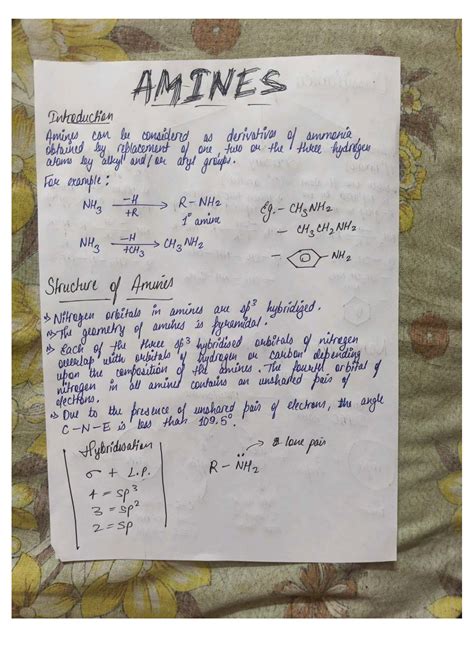 AMINES
Introduction
Amines can be considered as derivatives of ammonia
obtained by replacement of one, two or the three hydrogen
atoms by alkyl and/or aryl groups.
For example:
NH3 —H / +R → R-NH2
1° amine
NH3 —H / +CH3 → CH3NH2
Eg. - CH3NH2
- CH3CH2NH2
- NH2
Structure of Amines
Nitrogen orbitals in amines are sp3 hybridized.
The geometry of amines is pyramidal.
Each of the three sp3 hybridised orbitals of nitrogen
overlap with orbitals of hydrogen or carbon depending
upon the composition of the amines. The fourth orbital of
nitrogen in all amines contains an unshared pair of
electrons.
Due to the presence of unshared pair of electrons, the angle
C-N-E is less than 109.5°.
Hybridisation
σ + L.P.
4 = sp3
3 = sp2
2 = sp
lone pair
R-N̈H2